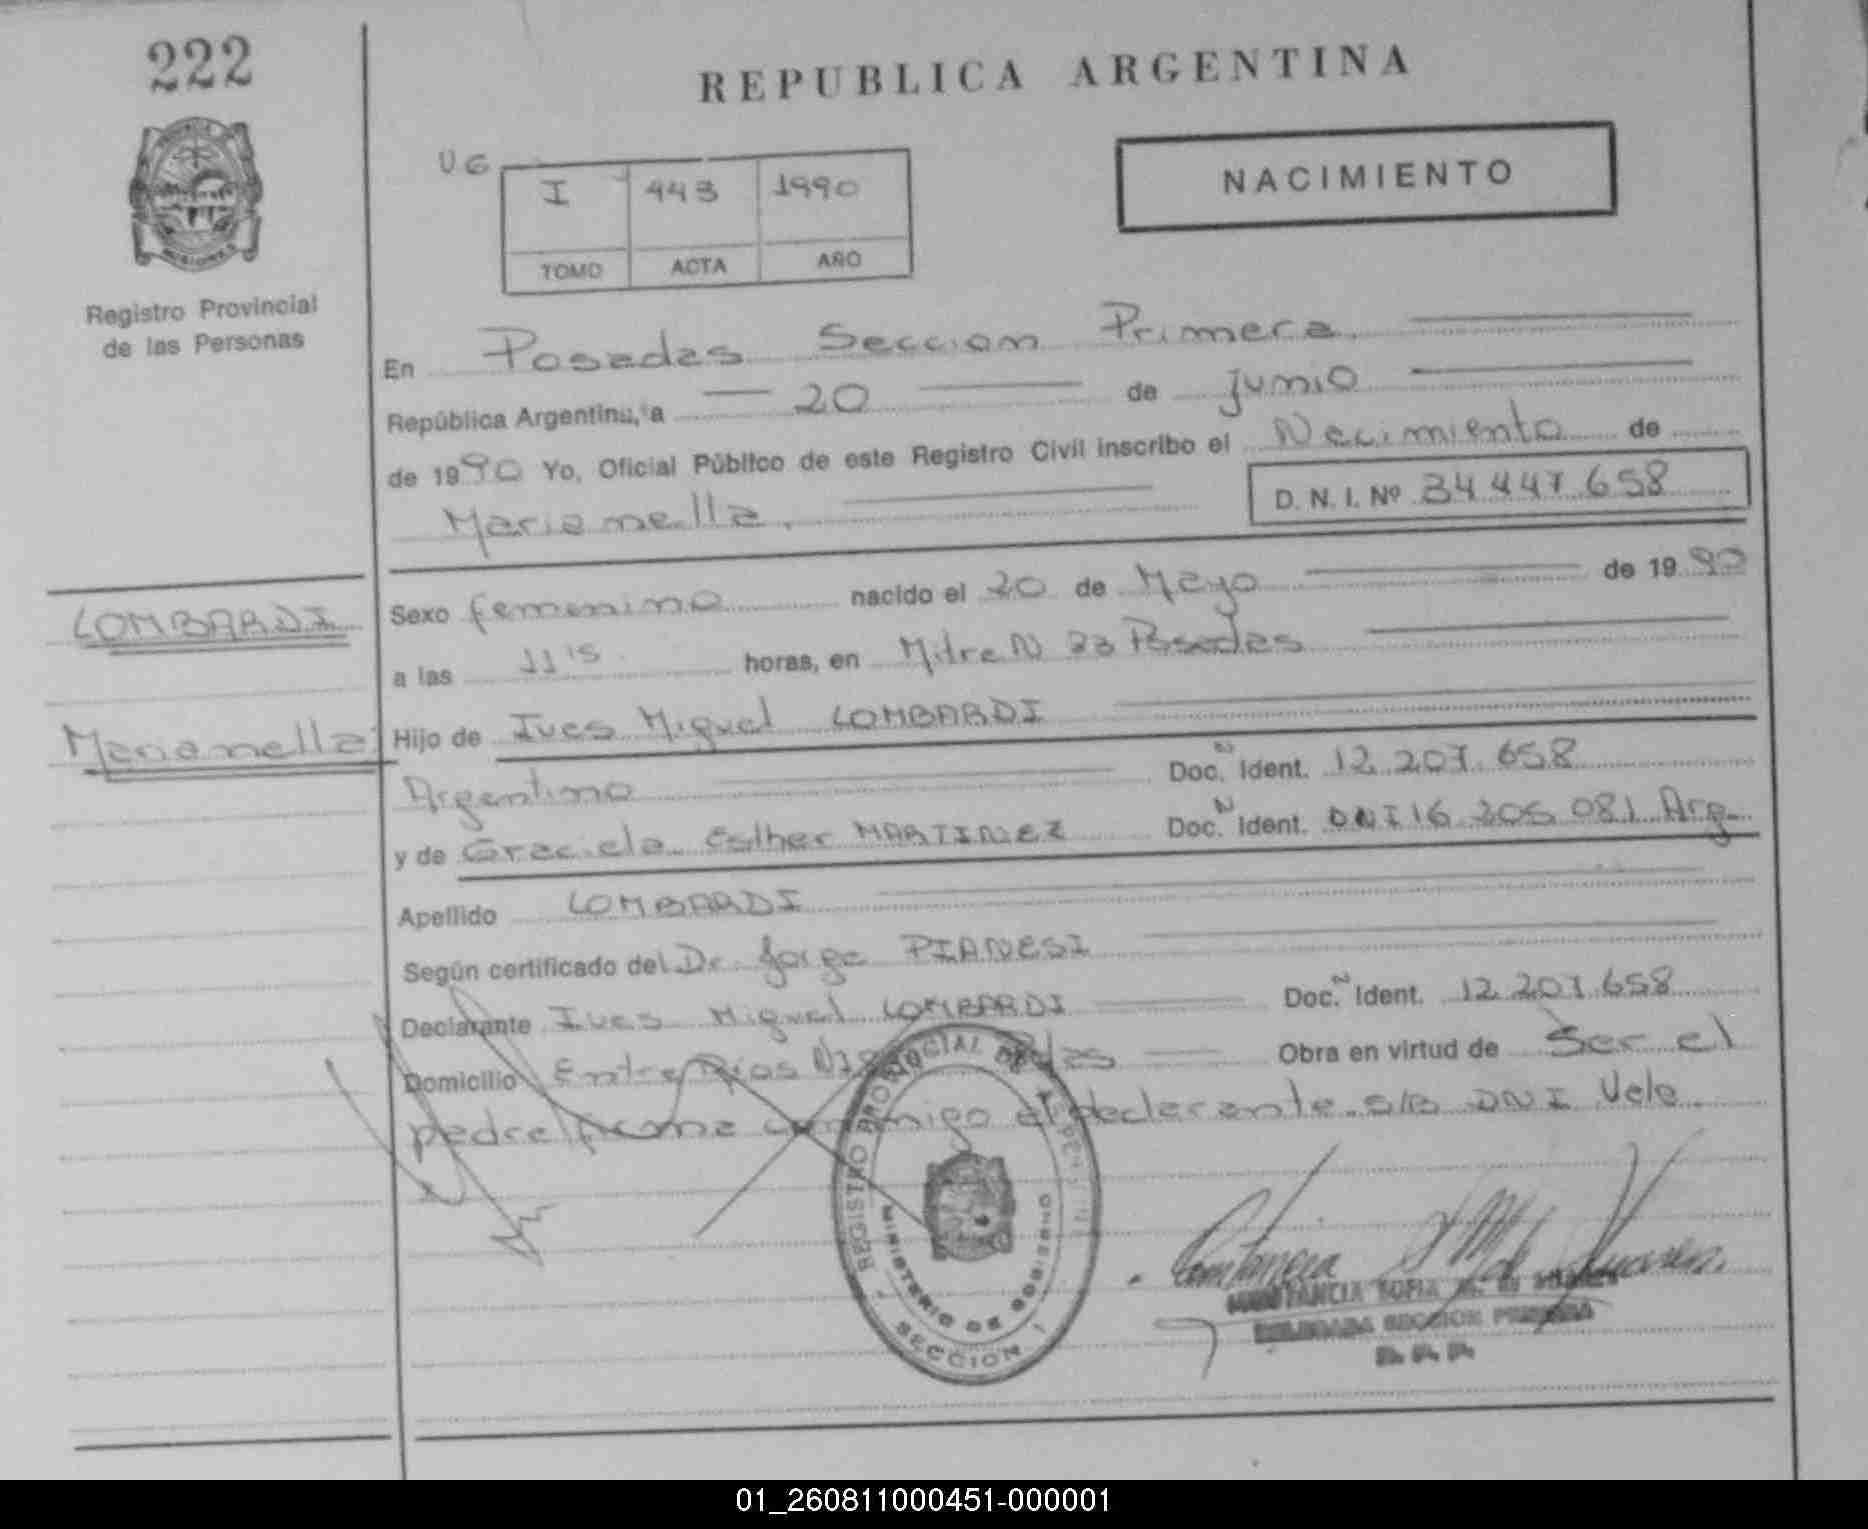 222
REPUBLICA ARGENTINA
UG
I 443 1990
TOMO ACTA AÑO
NACIMIENTO
Registro Provincial
de las Personas
En Posadas Seccion Primera
República Argentina, a 20 de junio
de 1990 Yo, Oficial Público de este Registro Civil inscribo el Nacimiento de
Marianella. D. N. I. Nº 34 447 658
LOMBARDI
Marianella
Sexo femenino nacido el 20 de Mayo de 1990
a las 11 15 horas, en Mitre N 23 Posadas
Hijo de Ives Miguel LOMBARDI
Argentino Doc. N Ident. 12.207.658
y de Graciela Esther MARTINEZ Doc. N Ident. DNI 16 305 081 Arg.
Apellido LOMBARDI
Según certificado del Dr. Jorge PIANESI
Declarante Ives Miguel LOMBARDI Doc. N Ident. 12.207.658
Domicilio Entre Rios Obra en virtud de Ser el
padre firma conmigo el declarante. S/B DNI Vale.
REGISTRO PROVINCIAL DE LAS PERSONAS
MINISTERIO DE GOBIERNO
SECCION 1
CONSTANCIA SOFIA
DELEGADA SECCION PRIMERA
R. P. P.
01_260811000451-000001